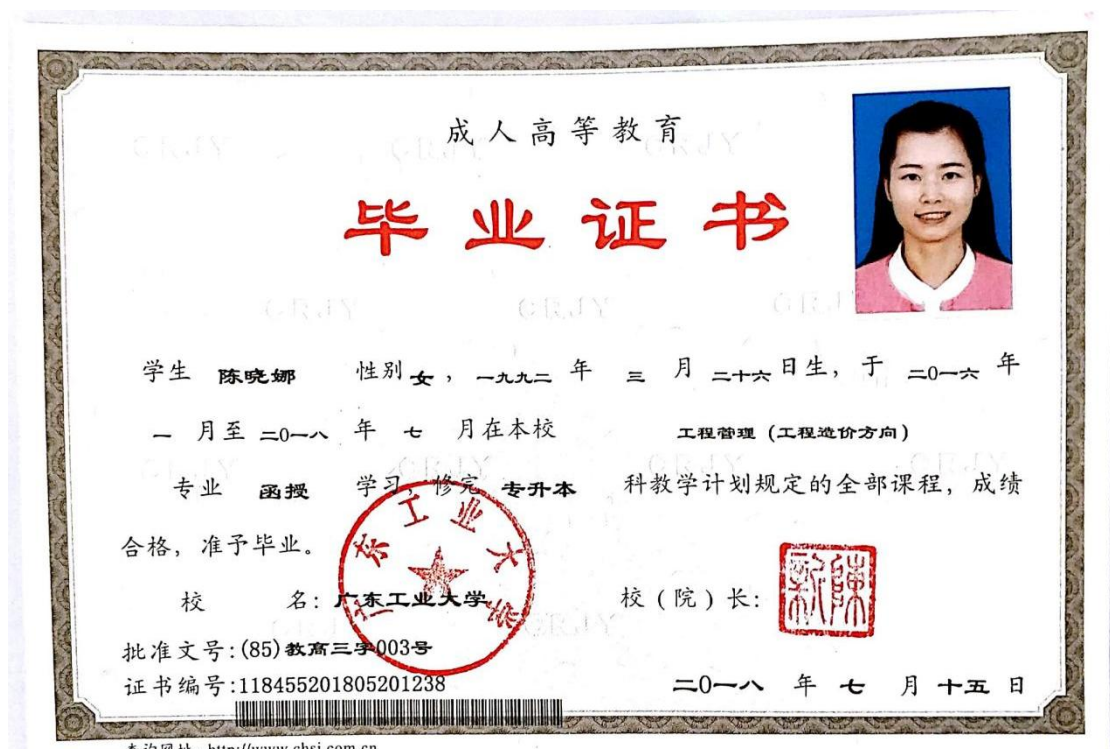 成人高等教育
毕业证书
学生 陈晓娜 性别 女 , 一九九二 年 三 月 二十六 日生, 于 二0一六 年
一 月至 二0一八 年 七 月在本校 工程管理 (工程造价方向)
专业 函授 学习, 修完 专升本 科教学计划规定的全部课程, 成绩
合格, 准予毕业。
广东工业大学
校 名: 广东工业大学 校 (院) 长: 陳新
批准文号:(85)教高三字003号
证书编号:118455201805201238 二0一八 年 七 月 十五 日
查询网址: http://www.chsi.com.cn